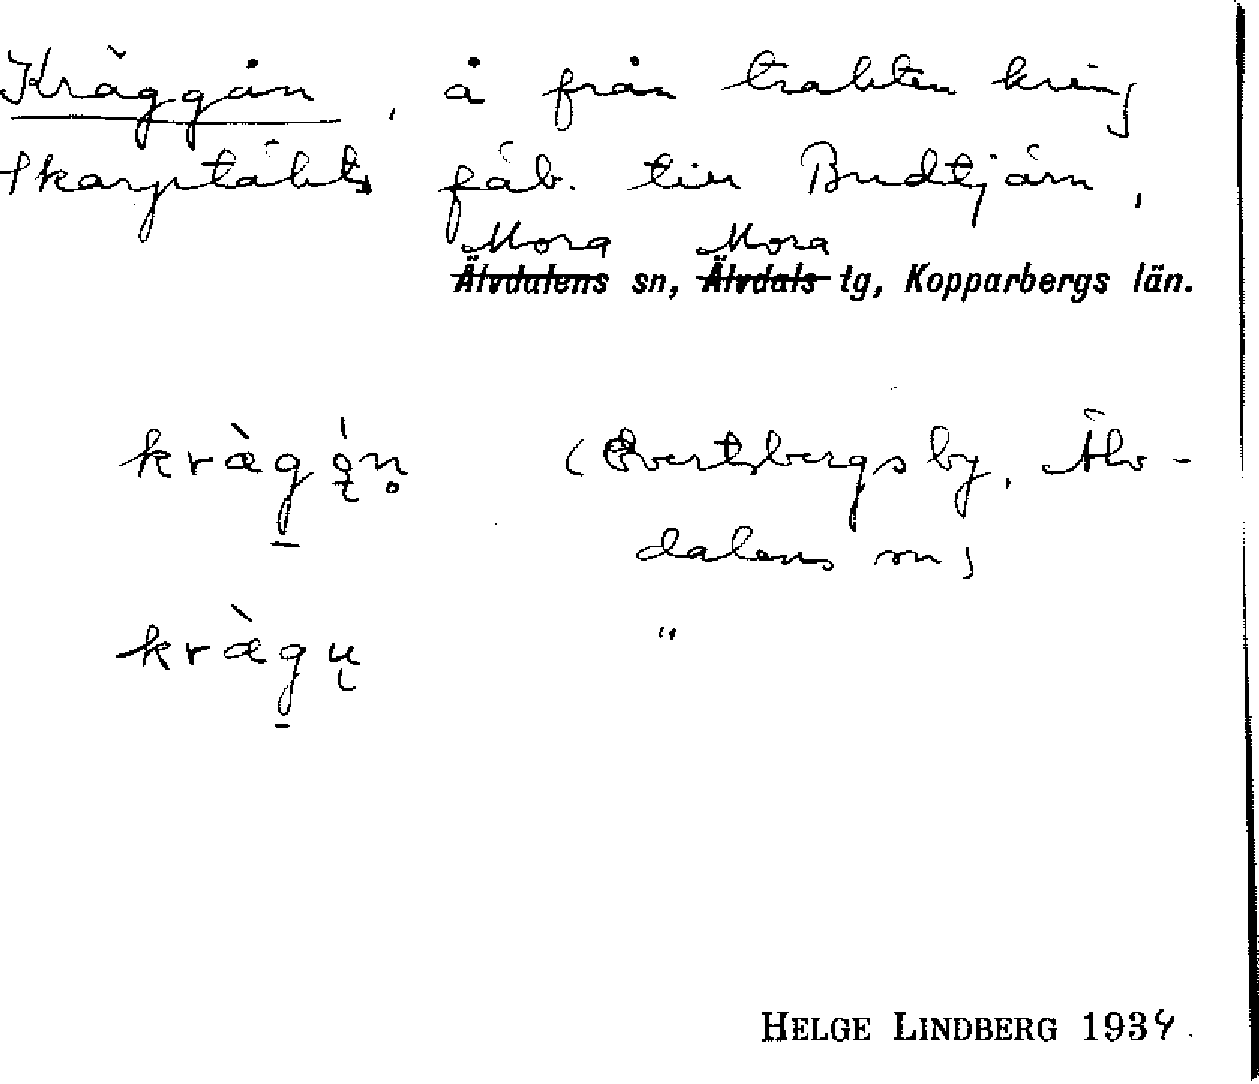 Kräggån, å från trakten kring
Skarptäkts fäb. till Budtjärn,
Mora Mora
Älvdalens sn, Älvdals tg, Kopparbergs län.
(Evertsbergs by, Älv-
dalens sn)
"
HELGE LINDBERG 1934.